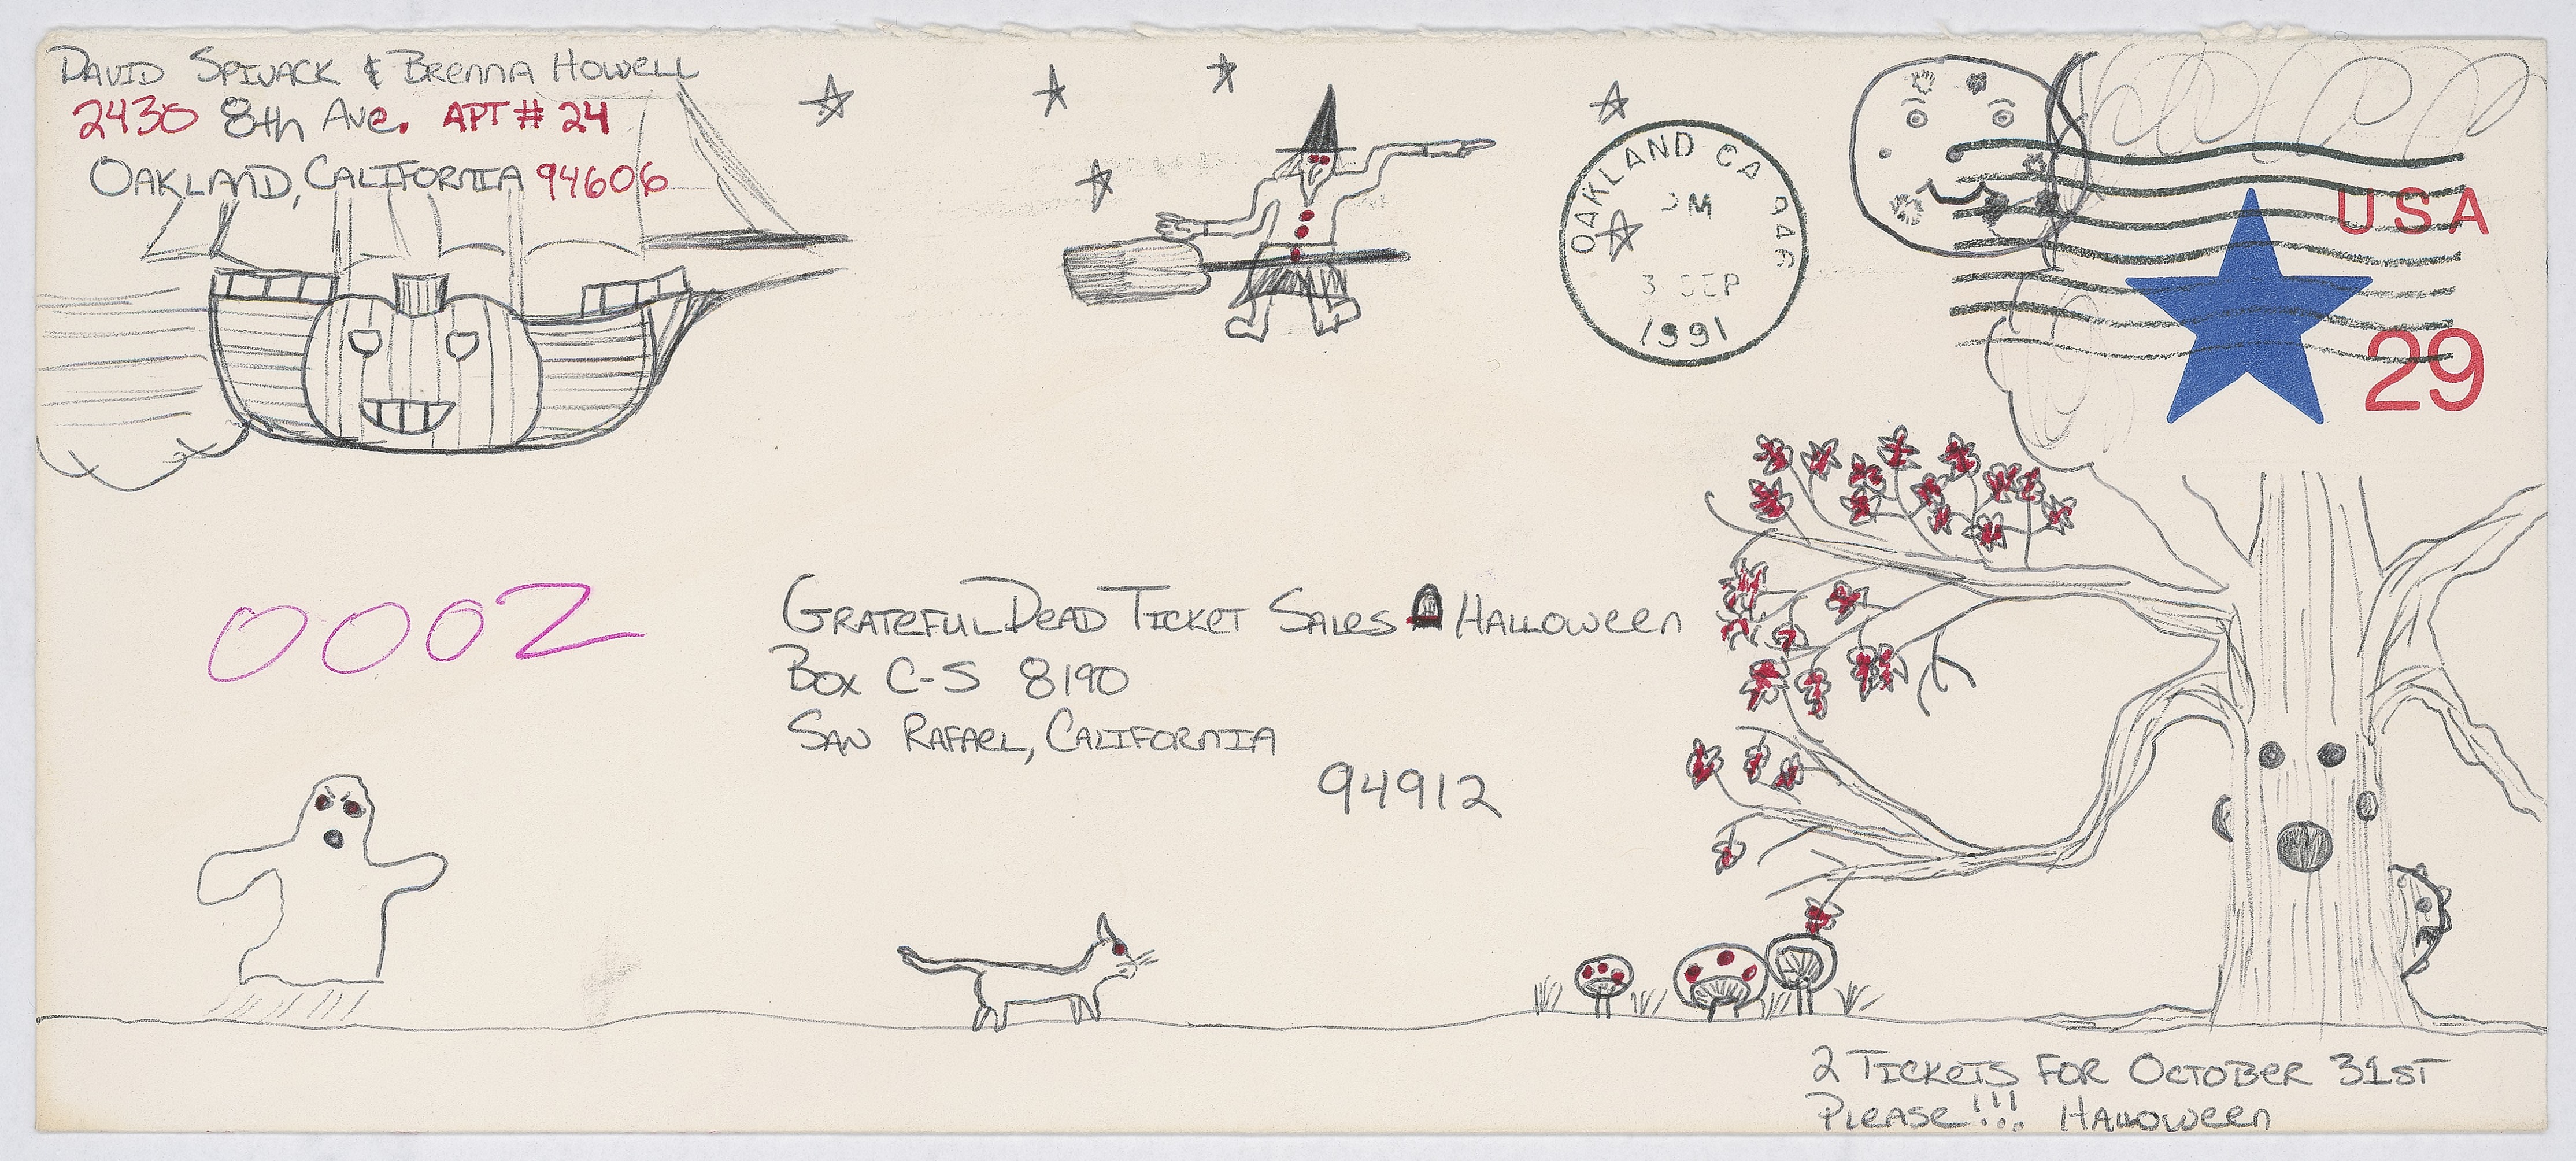 David Spivack & Brenna Howell
2430 8th Ave. APT # 24
Oakland, California 94606
OAKLAND CA 946
PM
3 SEP
1991
USA
29
0002
Grateful Dead Ticket Sales Halloween
Box C-S 8190
San Rafael, California
94912
2 Tickets for October 31st
Please!!! Halloween